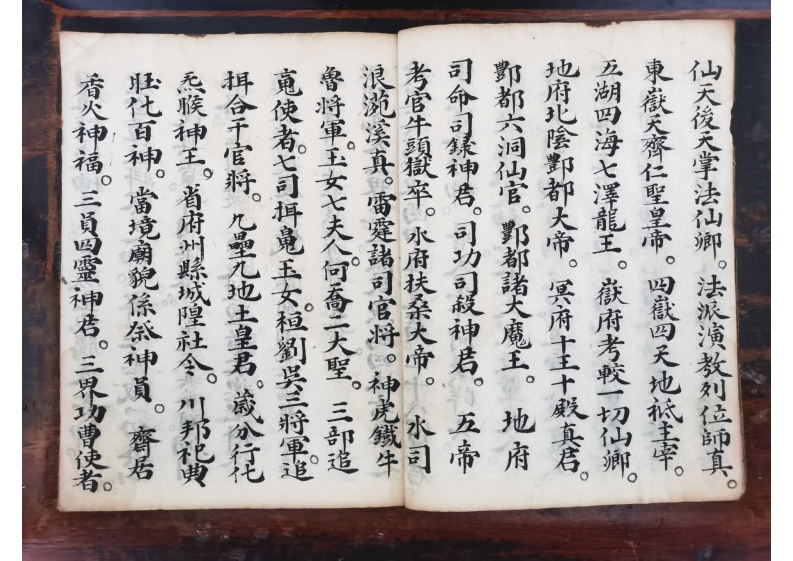 仙天後天掌法仙卿。法派演教列位師真。
東嶽天齊仁聖皇帝。四嶽四天地祗主宰。
五湖四海七澤龍王。嶽府考較一切仙卿。
地府北陰酆都大帝。冥府十王十殿真君。
酆都六洞仙官。酆都諸大魔王。地府
司命司録神君。司功司殺神君。五帝
考官牛頭獄卒。水府扶桑大帝。水司
浪苑溪真。雷霆諸司官將。神虎鐵牛
魯將軍。玉女七夫人。何喬二大聖。三部追
䰟使者。七司揖䰟玉女。桓劉吳三將軍追
揖合干官將。九壘九地土皇君。歲分行化
炁候神王。省府州縣城隍社令。川邦祀典
旺化百神。當境廟貌係祭神員。齋居
香火神福。三員四靈神君。三界功曹使者。